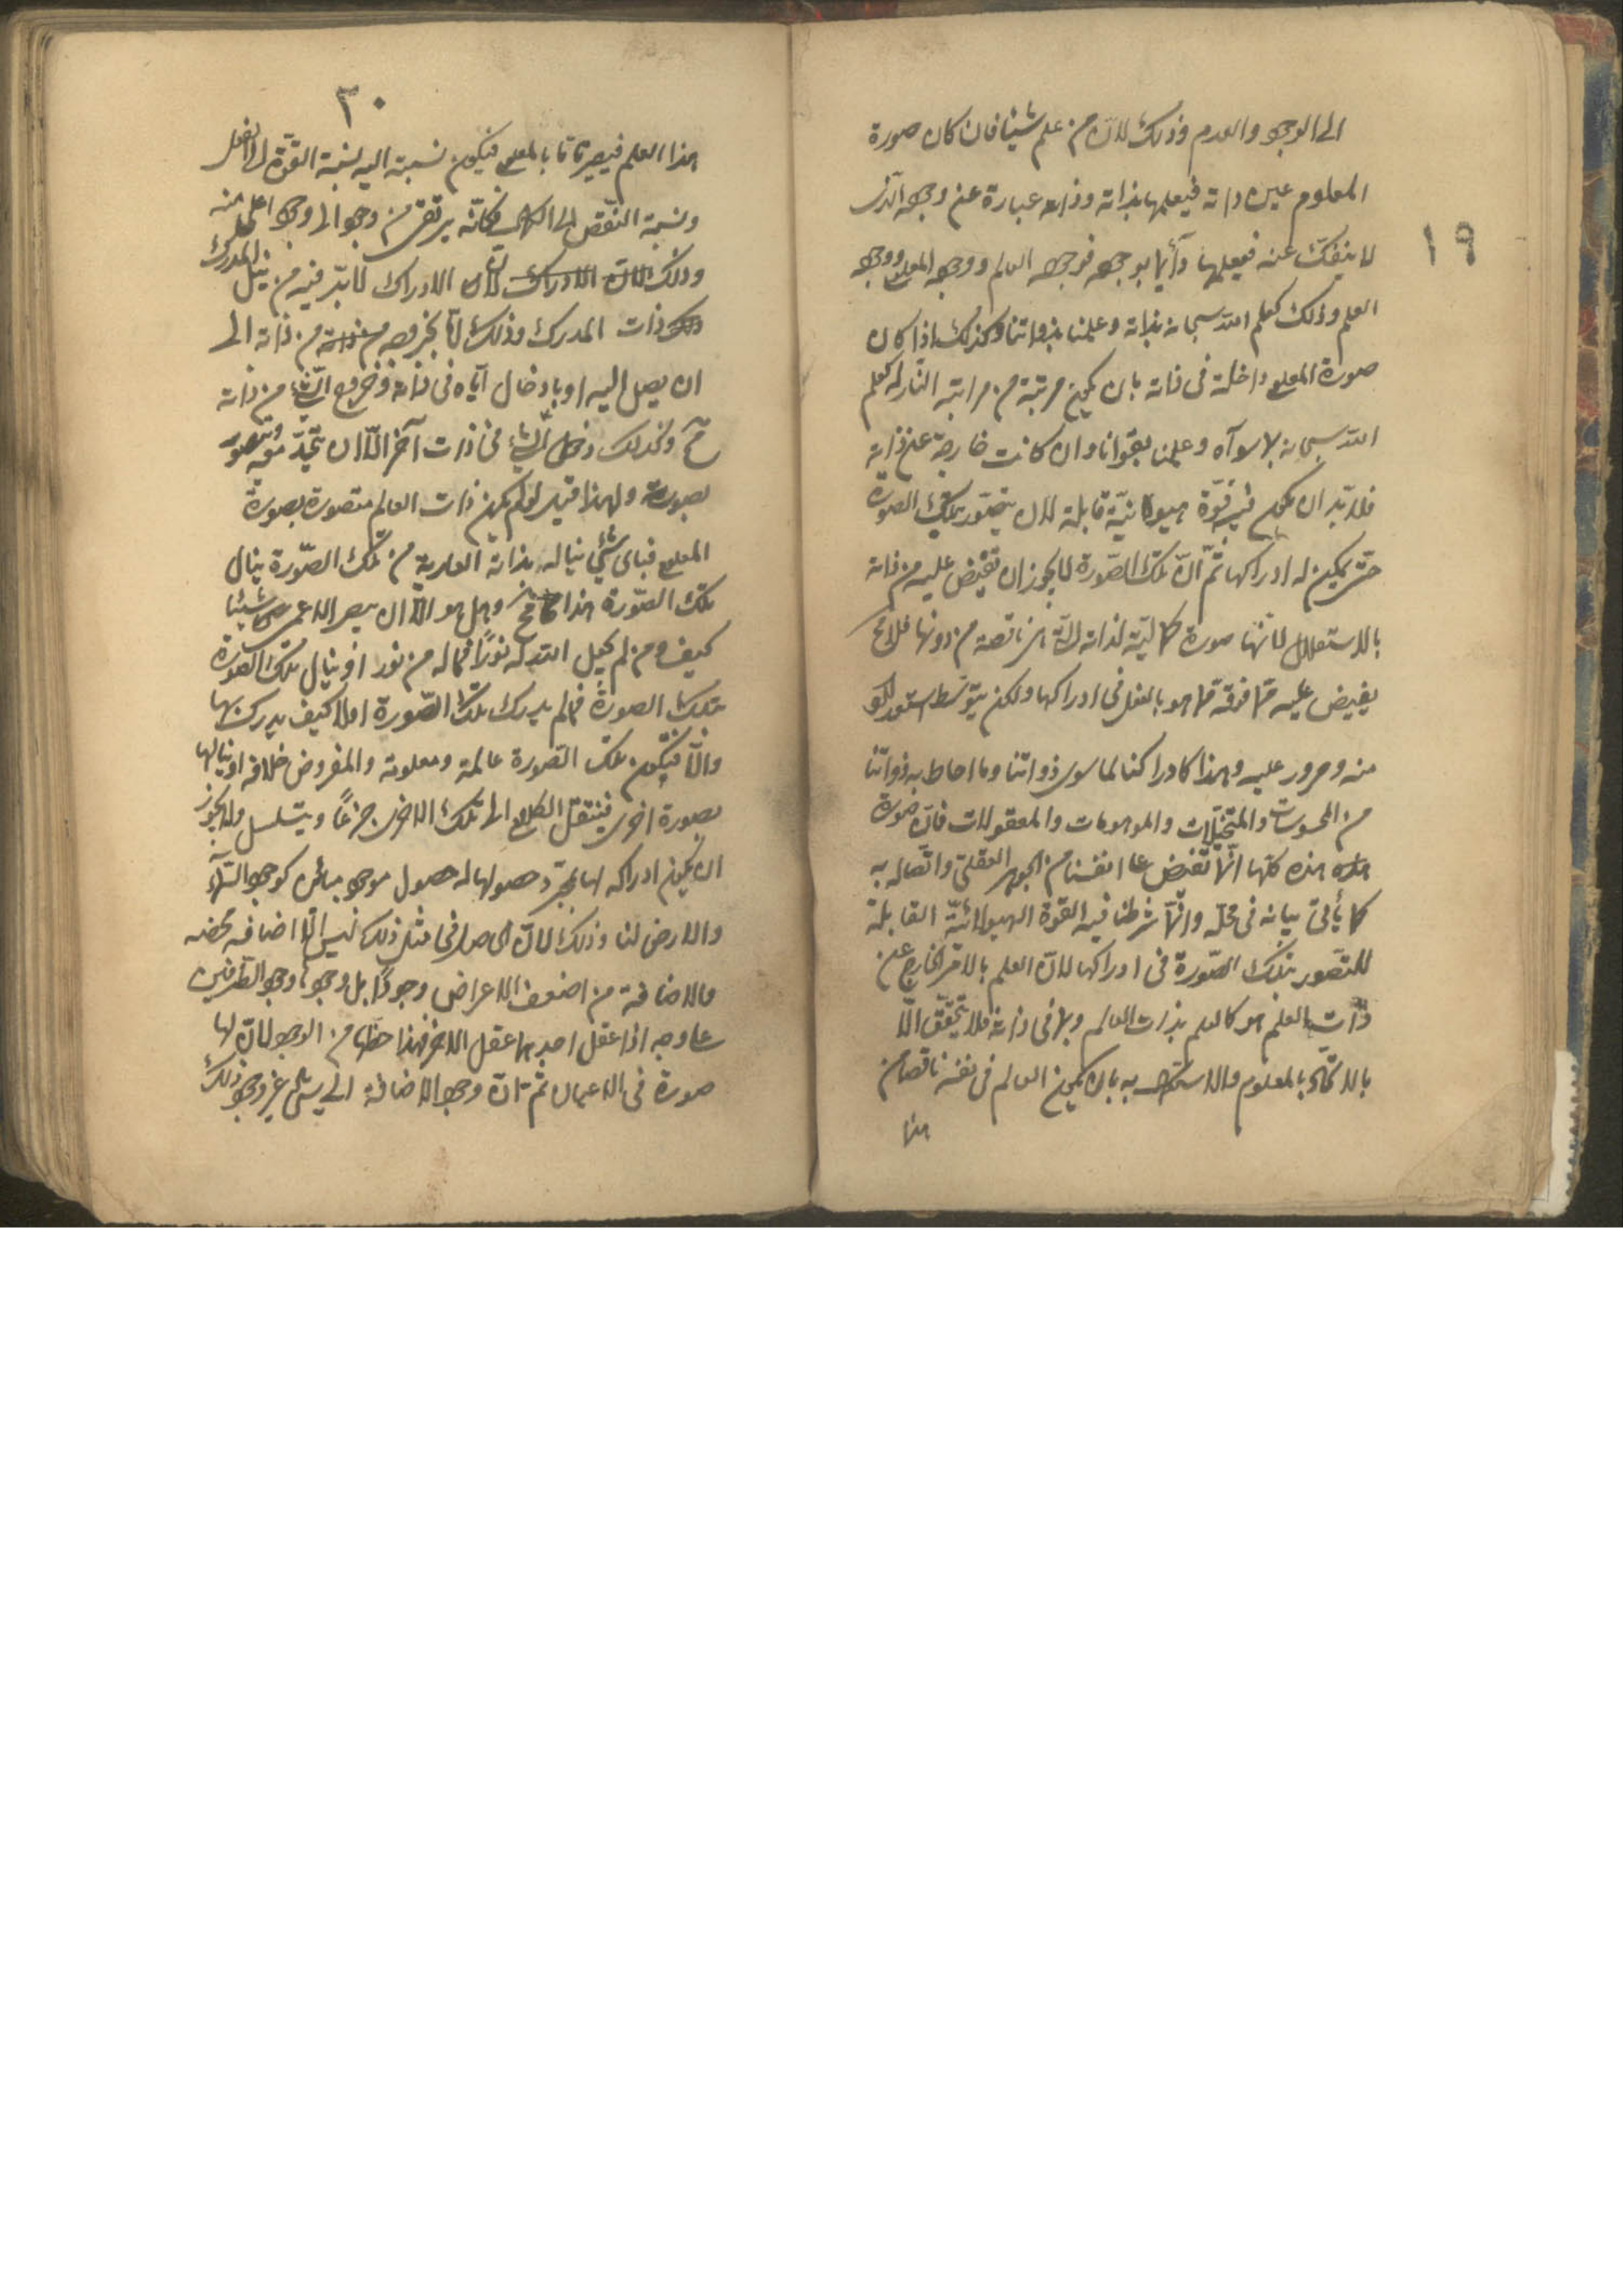 ١٩
الى الوجود والعدم وذلك لان من علم شيئا فان كان صورة
المعلوم عين ذاته فيعلمها بذاته وذاته عبارة عن وجوده الذى
لا ينفك عنه فيعلمها دائما بوجوده فوجود العالم ووجود المعلوم ووجود
العلم وذلك كعلم الله سبحانه بذاته وعلمنا بذواتنا وكذلك اذا كان
صورة المعلوم داخلة فى ذاته بان يكون مرتبة من مراتبه النازلة كعلم
الله سبحانه بما سواه وعلمنا بقوانا وان كانت خارجة عن ذاته
فلابد ان يكون فيه قوة هيولانية قابلة لان يتصور بتلك الصورة
حتى يمكن له ادراكها ثم ان تلك الصورة لا يجوز ان تفيض عليه من ذاته
بالاستقلال لانها صورة كمالية لذاته ناقصة من دونها فلا مح
يفيض عليه مما فوقه مما هو بالفعل فى ادراكها ولكن بتوسط استعداد
منه ومرور عليه وهذا كادراكنا لما سوى ذواتنا وما احاط به ذواتنا
من المحسوسات والمتخيلات والموهومات والمعقولات فان صورة
هذه كلها انما تفيض على انفسنا من الجوهر العقلى واتصاله به
كما يأتى بيانه فى محله وانما شرطنا فيه القوة الهيولانية القابلة
للتصور بتلك الصورة فى ادراكها لان العلم بالامر الخارج عن
ذات العلم هو كالعلم بذات العالم وبما فى ذاته فلا يتحقق الا
بالاتحاد بالمعلوم والاستكمال به بان يكون العالم فى نفسه ناقصا من
هذا
٢٠
هذا العلم فيصير تاما بالمعلوم فيكون نسبته اليه نسبة القوة الى الفعل
ونسبة النقص الى الكمال فكانه يرتقى من وجود الى وجود اعلى منه
وذلك لان الادراك لان الادراك لابد فيه من نيل المدرك
ذات المدرك وذلك اما بخروجه من ذاته الى
ان يصل اليه او بادخال اياه فى ذاته وخروج الشئ من ذاته
مح وكذلك دخول الشئ فى ذات آخر الا ان يتحد معه ويتصور
بصورته ولهذا قيل لو لم يكن ذات العالم متصورة بصورة
المعلوم فباى شئ يناله بذاته العارية من تلك الصورة ينال
تلك الصورة هذا مح وهل هو الا ان يبصر الاعمى شيئا
كيف ومن لم يجعل الله له نورا فما له من نور او ينال تلك الصورة
بتلك الصورة فما لم يدرك تلك الصورة اولا كيف يدرك بها
والا فيكون تلك الصورة عالمة ومعلومة والمفروض خلافه او ينالها
بصورة اخرى فننتقل الكلام الى تلك الاخرى جزعا ويتسلسل ولا يجوز
ان يكون ادراكه لها بمجرد حصولها له حصول موجود مباين كوجود السماء
والارض لنا وذلك لان الحاصل فى مثل ذلك ليس الا اضافة محضه
والاضافة من اضعف الاعراض وجودا بل وجودها وجود الطرفين
على وجه اذا عقل احدهما عقل الاخر فهذا حظها من الوجود لا ان لها
صورة فى الاعيان ثم ان وجود الاضافة الى شئ غير وجود ذلك